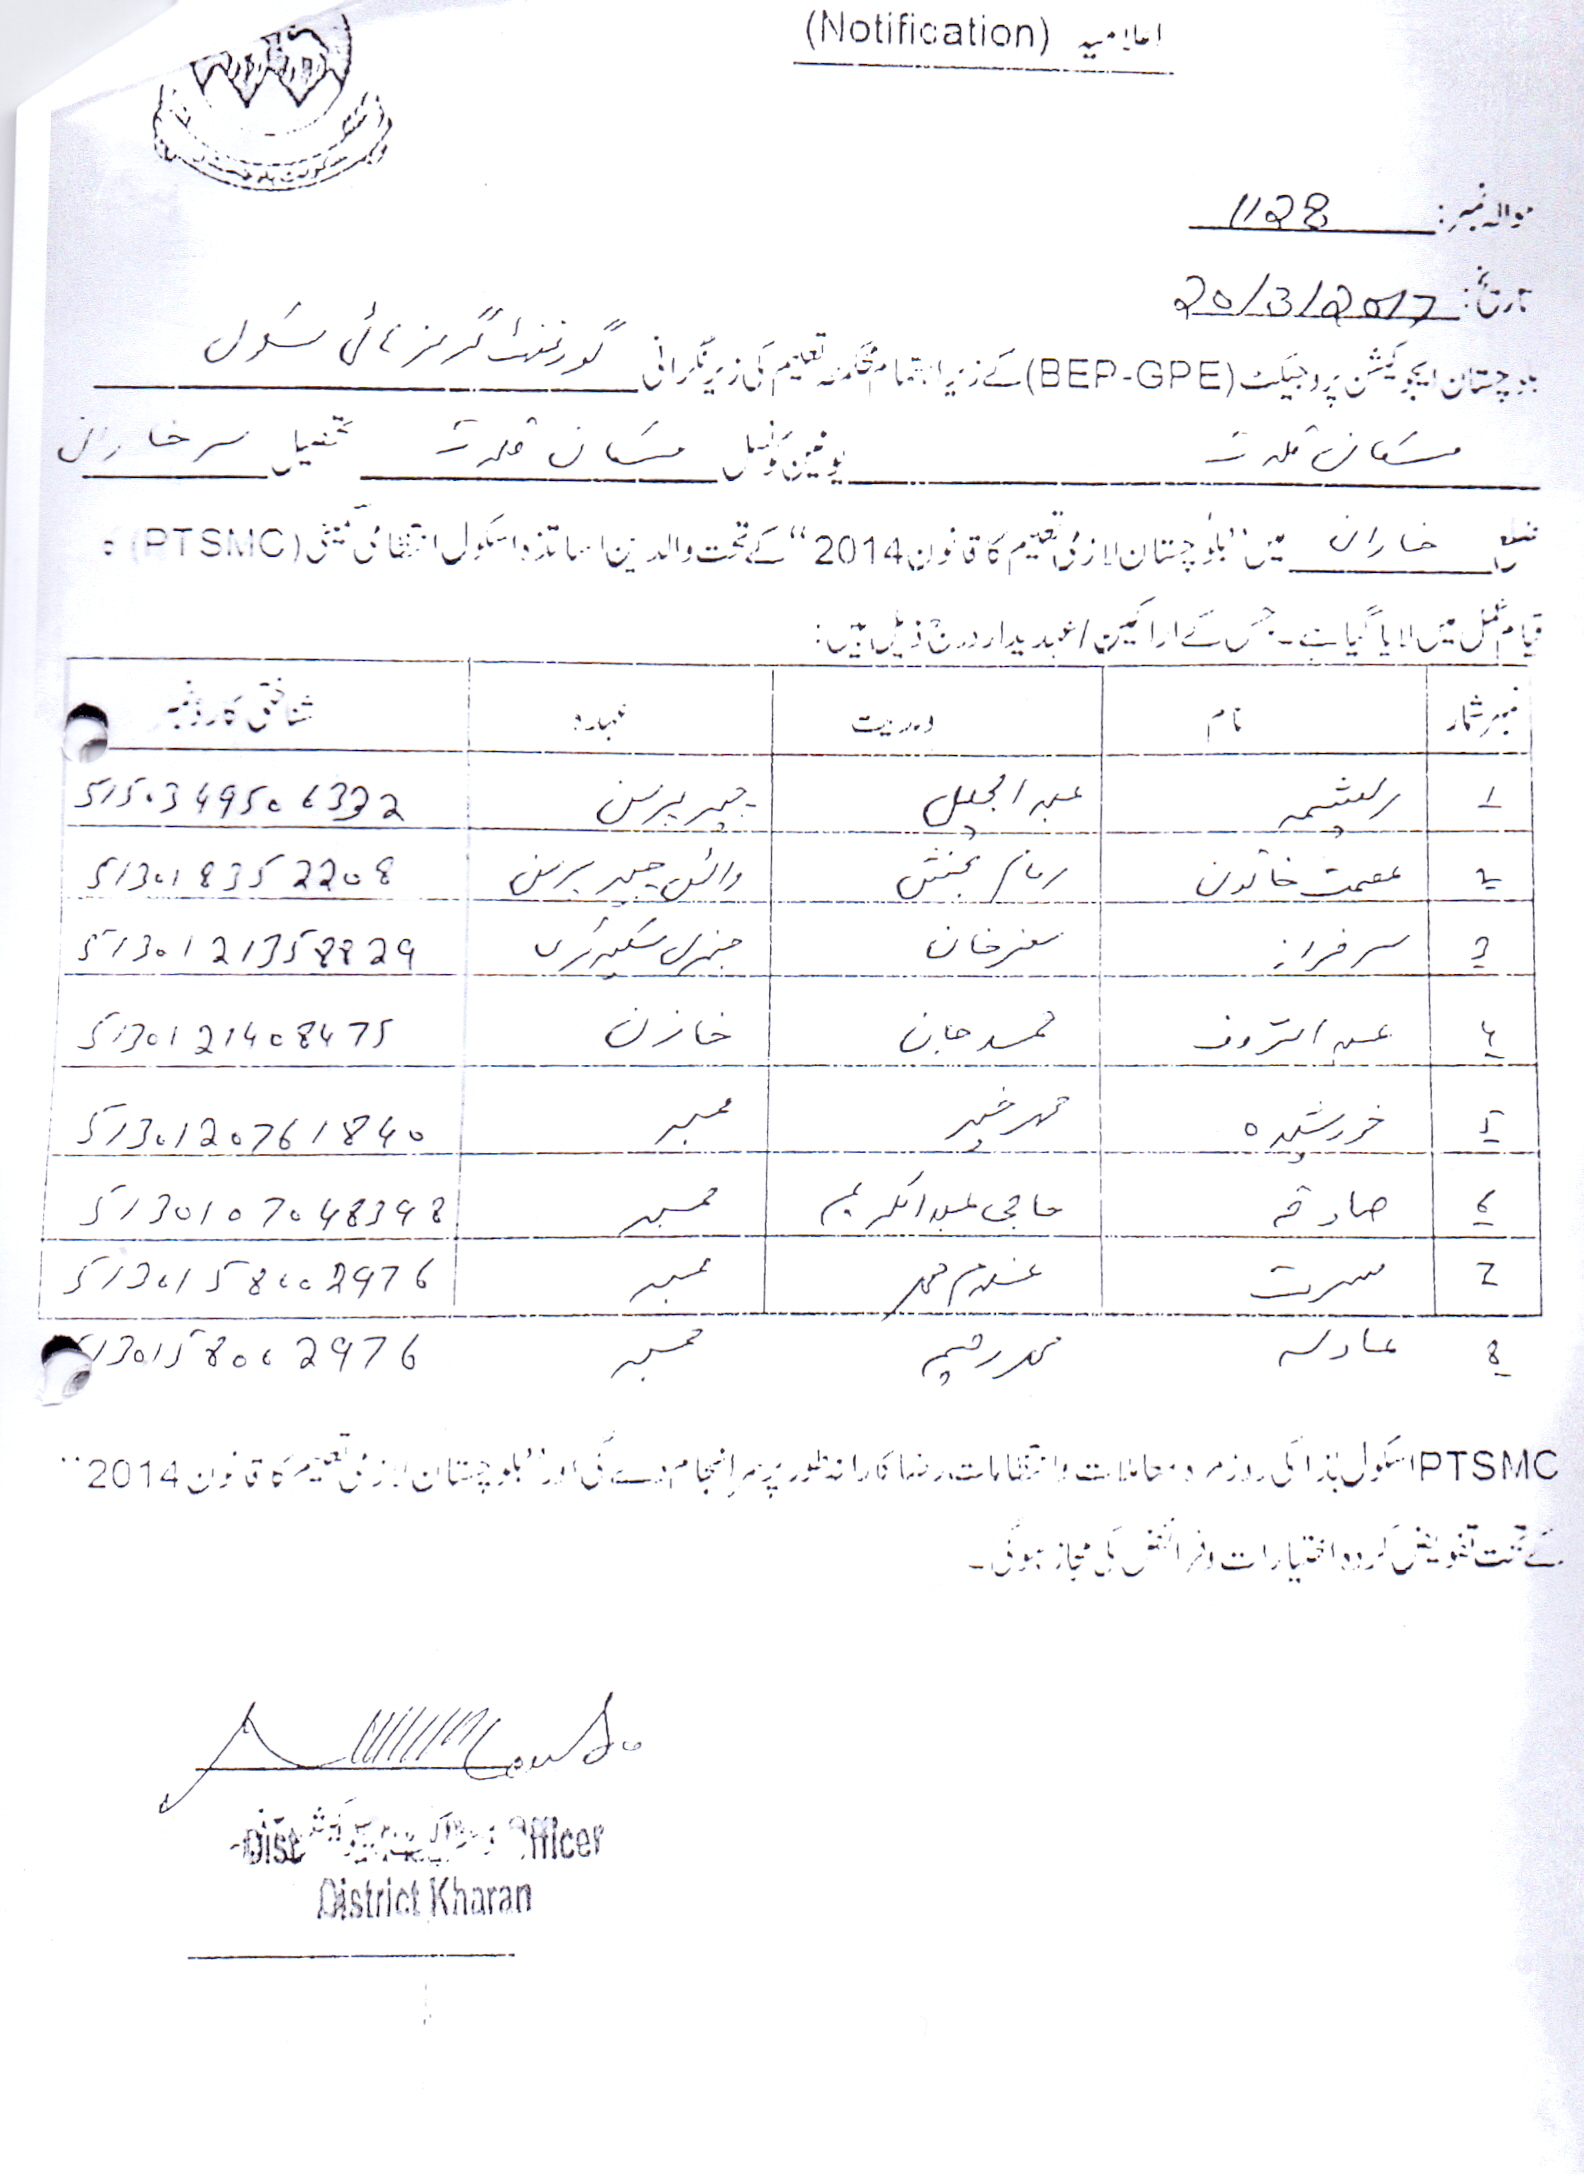 اعلامیہ (Notification)
حوالہ نمبر: 1128
تاریخ: 20/3/2017
بلوچستان ایجوکیشن پروجیکٹ (BEP-GPE) کے زیر اہتمام محکمہ تعلیم کی زیر نگرانی گورنمنٹ گرلز ہائی سکول
مسکان قلات یونین کونسل مسکان قلات تحصیل سرخاران
ضلع خاران میں "بلوچستان لازمی تعلیم کا قانون 2014" کے تحت والدین اساتذہ اسکول انتظامی کمیٹی (PTSMC) کا
قیام عمل میں لایا گیا ہے۔ جس کے اراکین / عہدیدار درج ذیل ہیں:
نمبر شمار نام ولدیت عہدہ شناختی کارڈ نمبر
1 ریشمہ عبدالجلیل چیئرپرسن 5150349506332
2 عصمت خاتون امام بخش وائس چیئرپرسن 513018352208
3 سرفراز سفرخان جنرل سیکرٹری 5130121358829
4 عبدالرؤف محمد جان خازن 5130121408475
5 خورشیدہ محمد خیر ممبر 5130120761840
6 صادقہ حاجی عبدالکریم ممبر 5130107048398
7 مسرت غلام محمد ممبر 5130158002976
8 عادلہ محمد رحیم ممبر 5130158002976
PTSMC اسکول ہذا کی روزمرہ معاملات و انتظامات رضاکارانہ طور پر سرانجام دے گی اور "بلوچستان لازمی تعلیم کا قانون 2014"
کے تحت تفویض کردہ اختیارات و فرائض کی مجاز ہوگی۔
Dist Officer
District Kharan